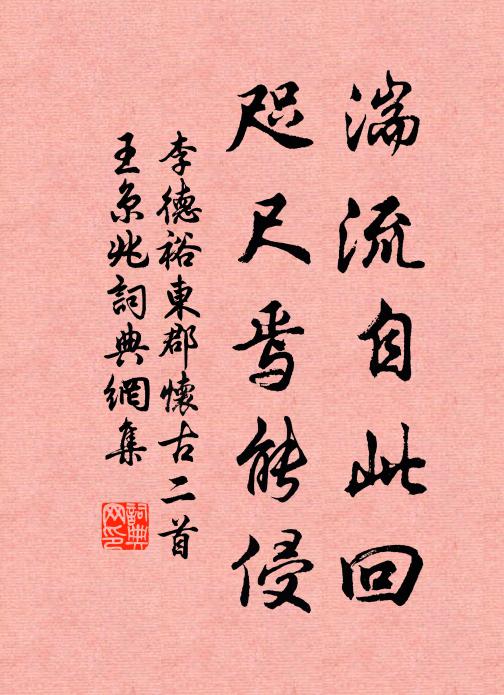 湍流自此回
咫尺焉能侵
李德裕東郡懷古二首
王京兆詞典網集
詞典網印